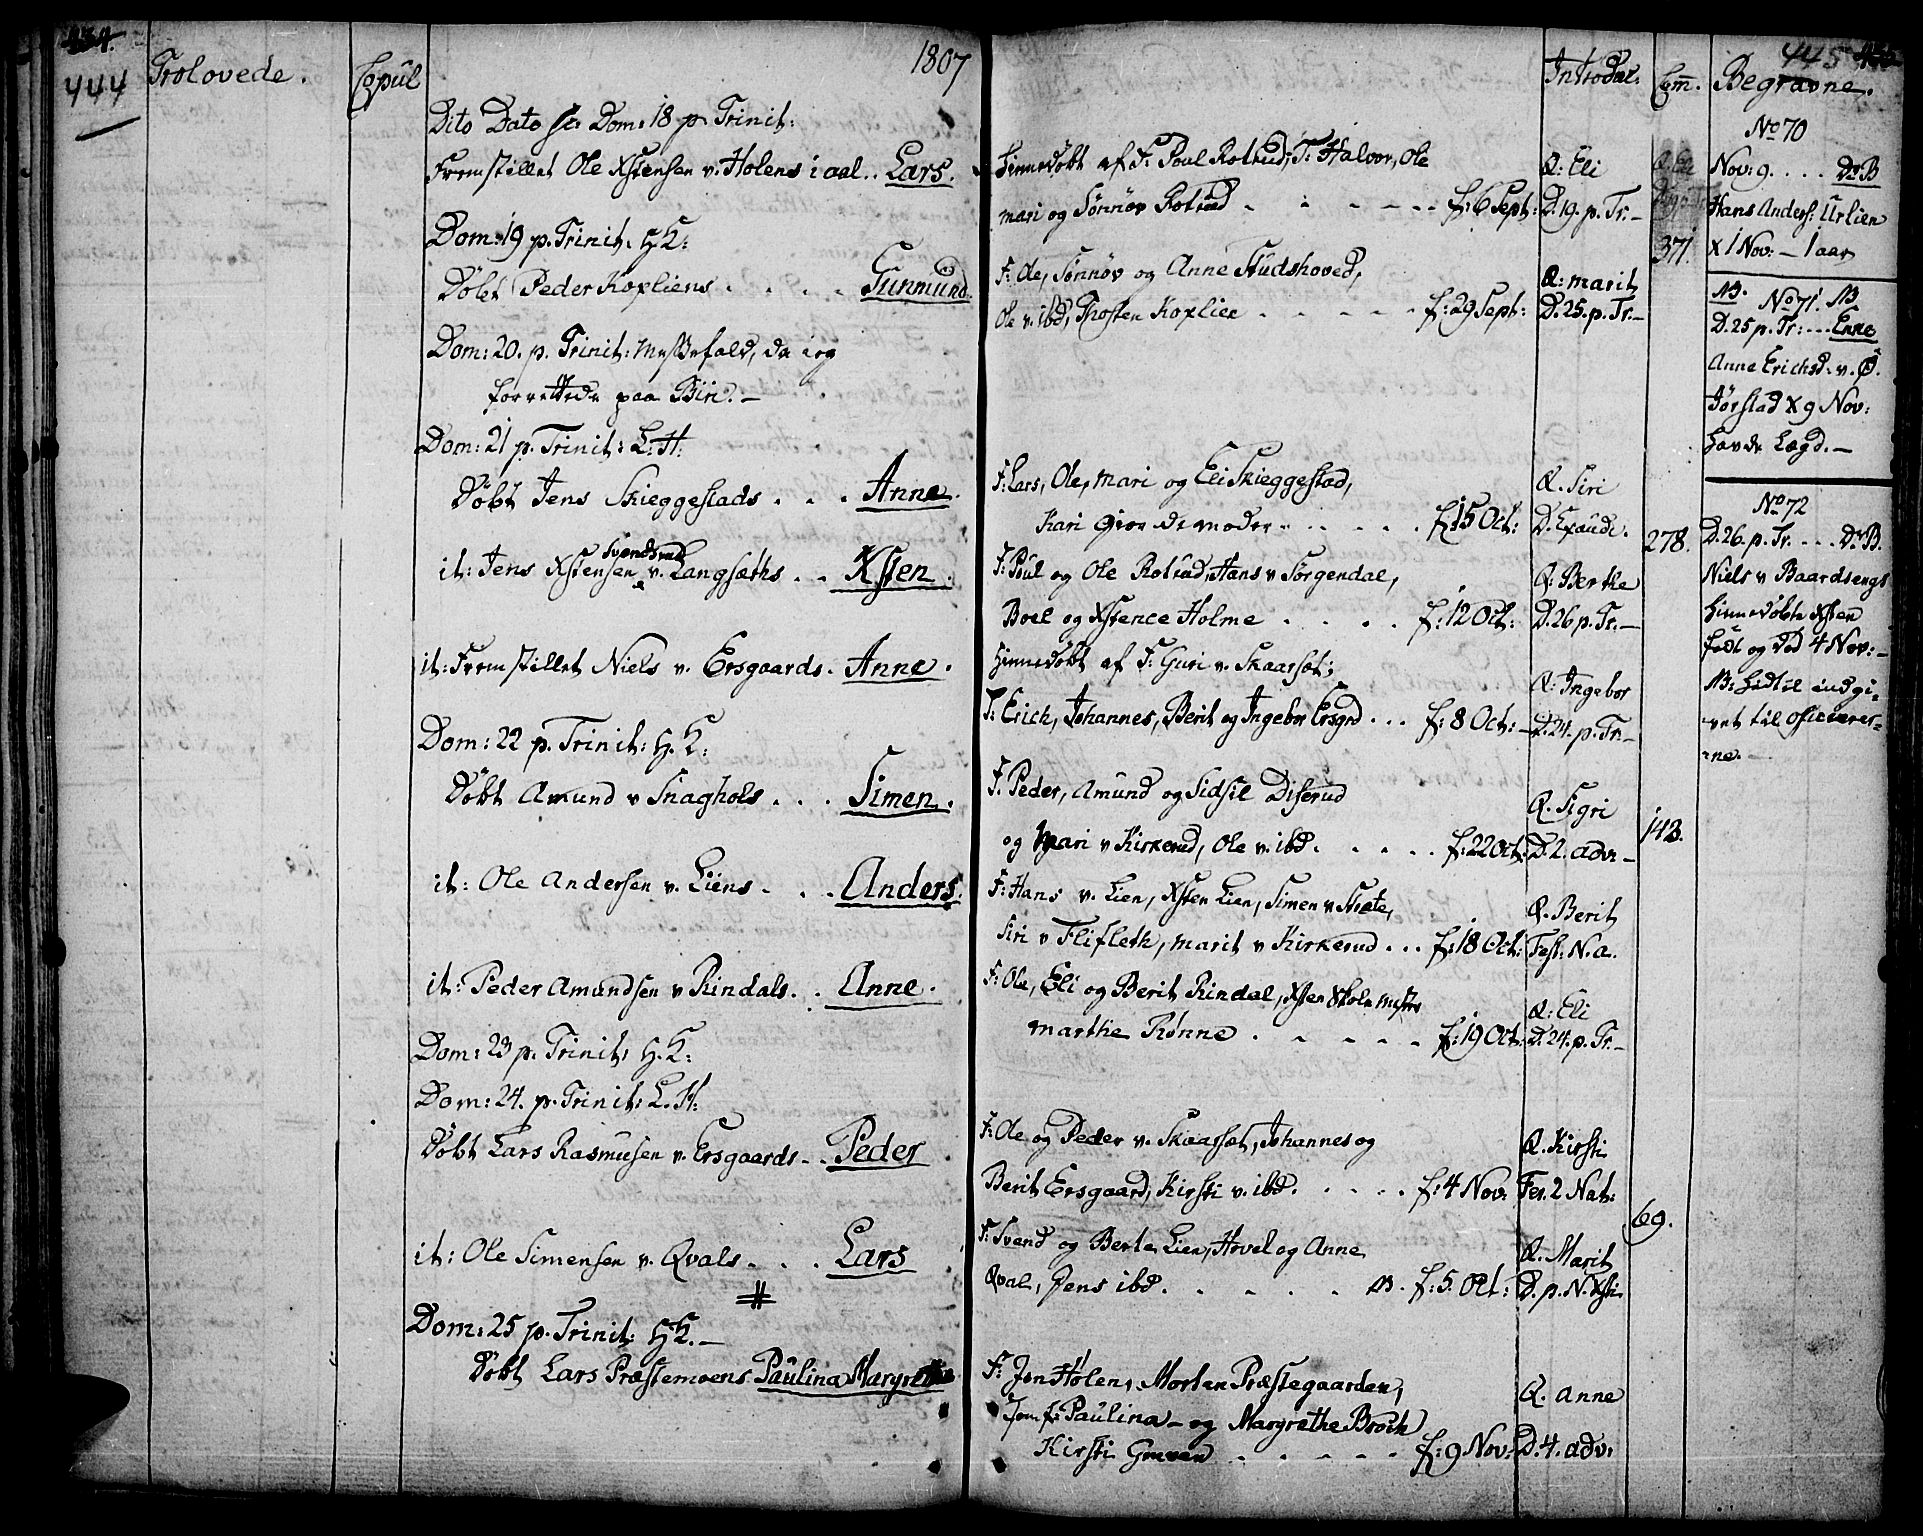 434.
444
Trolovede.
Copul
1807
Dito Dato sc: Dom: 18 p. Trinit:
Fremstillet Ole Xstensen v. Holens i aal.. Lars.
Dom: 19 p. Trinit. H.K:
Döbt Peder Kopliens . . . . Gunmund.
Dom: 20. p. Trinit: Messefald, da ieg
forrettede paa Biri. —
Dom: 21 p. Trinit: L.H:
Döbt Jens Skieggestads . . . Anne.
Svendsrud
it: Jens Xstensen v. Langsæths . . Xsten.
it: Fremstillet Niels v. Ersgaards. Anne.
Dom: 22 p. Trinit: H.K:
Döbt Amund v Snaghols . . . Simen.
it: Ole Andersen v. Liens . . . Anders.
it: Peder Amundsen v Rindals. . Anne.
Dom: 23 p. Trinit: H.K:
Dom: 24. p. Trinit: L.H:
Döbt Lars Rasmusen v. Ersgaards . . Peder
it: Ole Simensen v. Qvals . . . Lars
Dom: 25 p. Trinit: H.K. —
Döbt Lars Præstemoens Paulina Margrethe
Hiemedöbt af F: Poul Rotrud, T: Halvor, Ole
mari og Sönnöv Rotrud . . . . . f: 6 Sept:
F: Ole, Sönnöv og Anne Studshoved,
Ole v. ibd, Thosten Koplien . . . . . f: 29 Sept:
F: Lars, Ole, Mari og Eli Skieggestad,
Kari Giordemoder . . . . . f: 15 Oct:
F: Poul og Ole Rotrud, Hans v Sörgendal,
Boel og Xstence Holme . . . . f: 12 Oct:
Hiemedöbt af F: Guri v. Skaarset;
T: Erich, Johannes, Berit og Ingebor Ersgrd . . . f: 8 Oct: —
F: Peder, Amund og Sidsil Diserud
og Mari v Kirkerud, Ole v. ibd . . . . . f: 22 Oct:
F: Hans v. Lien, Xsten Lien, Simen v Stræte,
Siri v Flifleth, Marit v Kirkerud . . . f: 18 Oct:
F: Ole, Eli og Berit Rindal, Xsten Skolemester
Marthe Rönne . . . . . f: 19 Oct:
F: Ole og Peder v. Skaarset, Johannes og
Berit Ersgaard, Kirsti v. ibd. . . . . f: 4 Nov:
F: Svend og Berte Lien, Hovel og Anne
Qval, Jens ibd . . . . . NB. f: 5. Oct:
F: Jon Holen, Morten Præstegaarden,
Jomf: Paulina — og Margrethe Broch
Kirsti . . . . . f: 9 Nov:
Introduc.
Q: Eli
D. 19. p. Tr: —
Q: marit
D. 25. p. Tr. —
Q. Siri
D. Exaudi.
Q: Berthe
D. 26 p. Tr. —
Q: Ingebor
D. 24. p. Tr. —
Q. Sigri
D. 2. adv: —
Q. Berit
Fest. N. a.
Q: Eli
D. 24. p. Tr. —
Q. Kirsti
Fer. 2 Nat:
Q. Marit
D. p. N. Xsti
Q. Anne
D. 4. adv:
Com̄.
371
278.
142.
69.
445
Begravne.
No 70
Nov: 9. . . . Dr. B
Hans Anders: Urlien
X 1 Nov: — 1 aar
NB. No 71. NB
D. 25 p. Tr: . . . Enne
Anne Erichsd. v. Ö.
Jörstad X 9 Nov:
havde Lægd. —
No 72
D. 26. p. Tr. . . . Dr. B.
Niels v Baardsengs
hiemedöbte Xsten
födt og död 4 Nov: —
NB: hidtil indgi-
vet til officerer-
ne. —